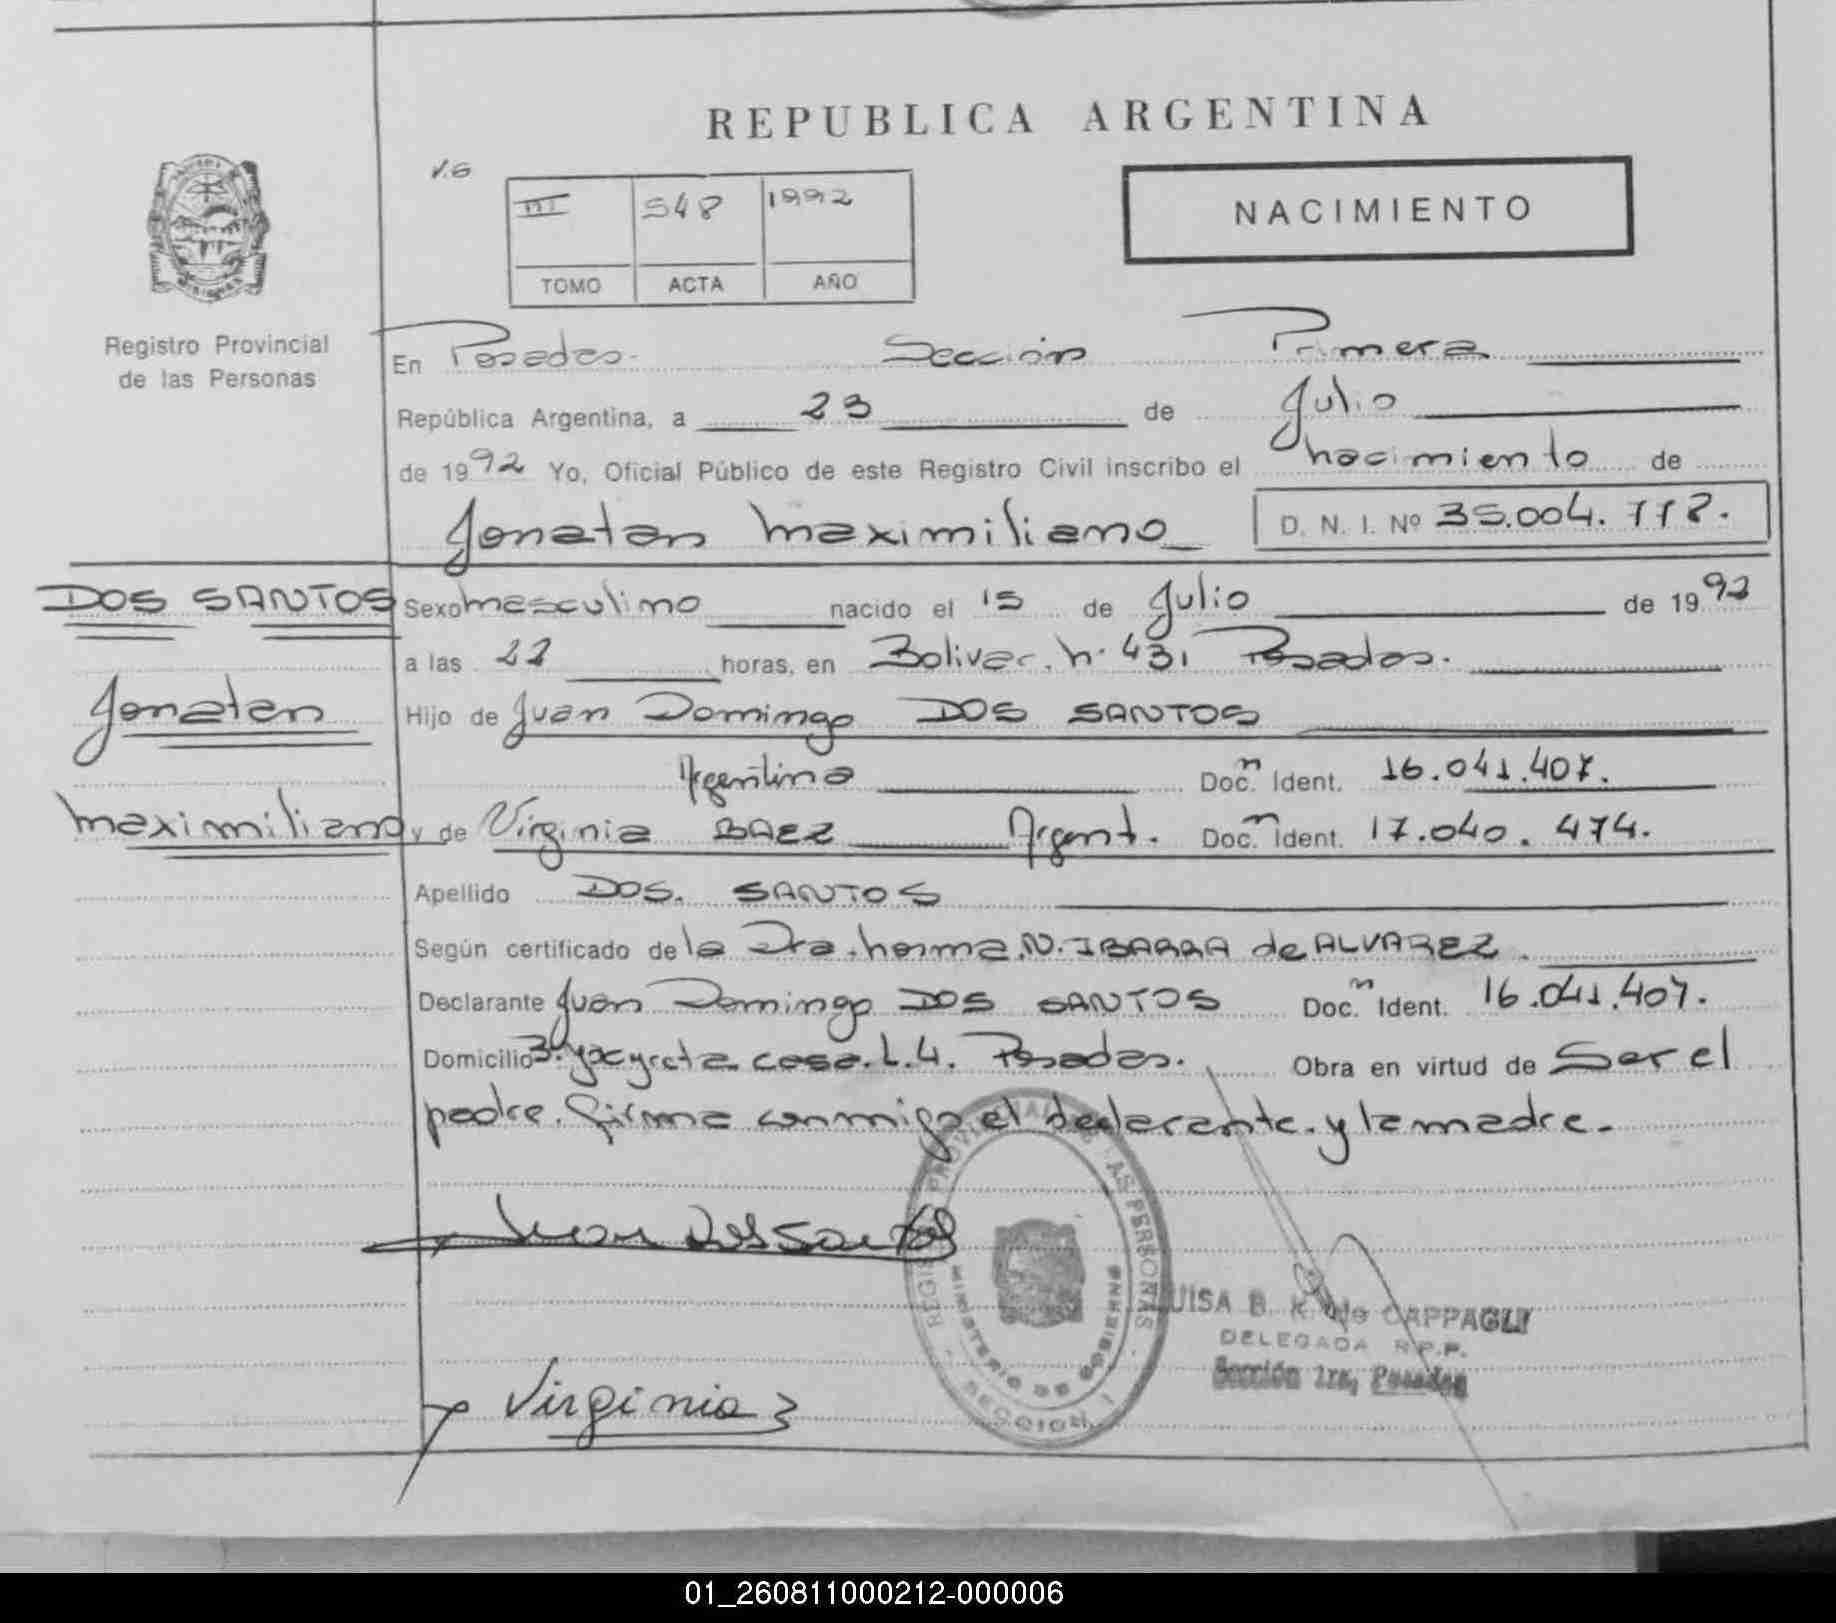 REPUBLICA ARGENTINA
V.G
III 548 1992
TOMO ACTA AÑO
NACIMIENTO
Registro Provincial
de las Personas
En Posadas. Sección Primera
República Argentina, a 23 de Julio
de 1992 Yo, Oficial Público de este Registro Civil inscribo el nacimiento de
Jonatan Maximiliano D. N. I. Nº 35.004.
DOS SANTOS
Jonatan
Maximiliano
Sexo masculino nacido el 15 de Julio de 1992
a las horas, en Bolivar. N. 431 Posadas.
Hijo de Juan Domingo DOS SANTOS
Argentino Doc. Ident. 16.041.407.
y de Virginia BAEZ Argent. Doc. Ident. 17.040.474.
Apellido DOS. SANTOS
Según certificado de la Dra. Norma.N. IBARRA de ALVAREZ.
Declarante Juan Domingo DOS SANTOS Doc. Ident. 16.041.407.
Domicilio Yacyreta casa. L.4. Posadas. Obra en virtud de Ser el
padre. firma conmigo el declarante. y la madre.
Juan Dos Santos
REGISTRO PROVINCIAL DE LAS PERSONAS
MINISTERIO DE GOBIERNO
SECCION 1
UISA B. K. de CAPPAGLI
DELEGADA R.P.P.
Sección 1ra, Posadas
Virginia
01_260811000212-000006